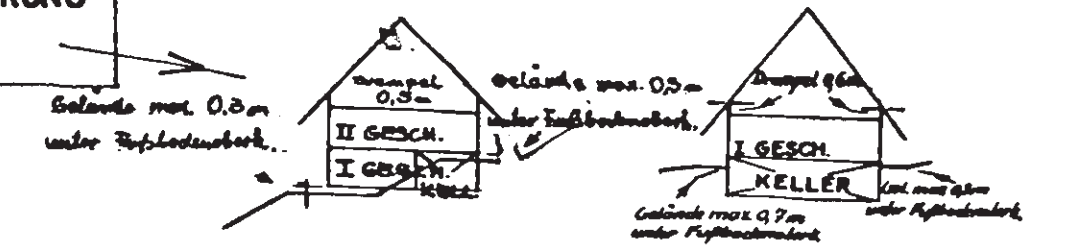 Gelände max. 0,3m
unter Fußbodenoberk.
Drempel
0,5m
II GESCH.
I GESCH.
KELL.
Gelände max. 0,3m
unter Fußbodenoberk.
Drempel 0,6m
I GESCH.
KELLER
Gelände max 0,7m
unter Fußbodenoberk.
max
unter Fußbodenoberk.